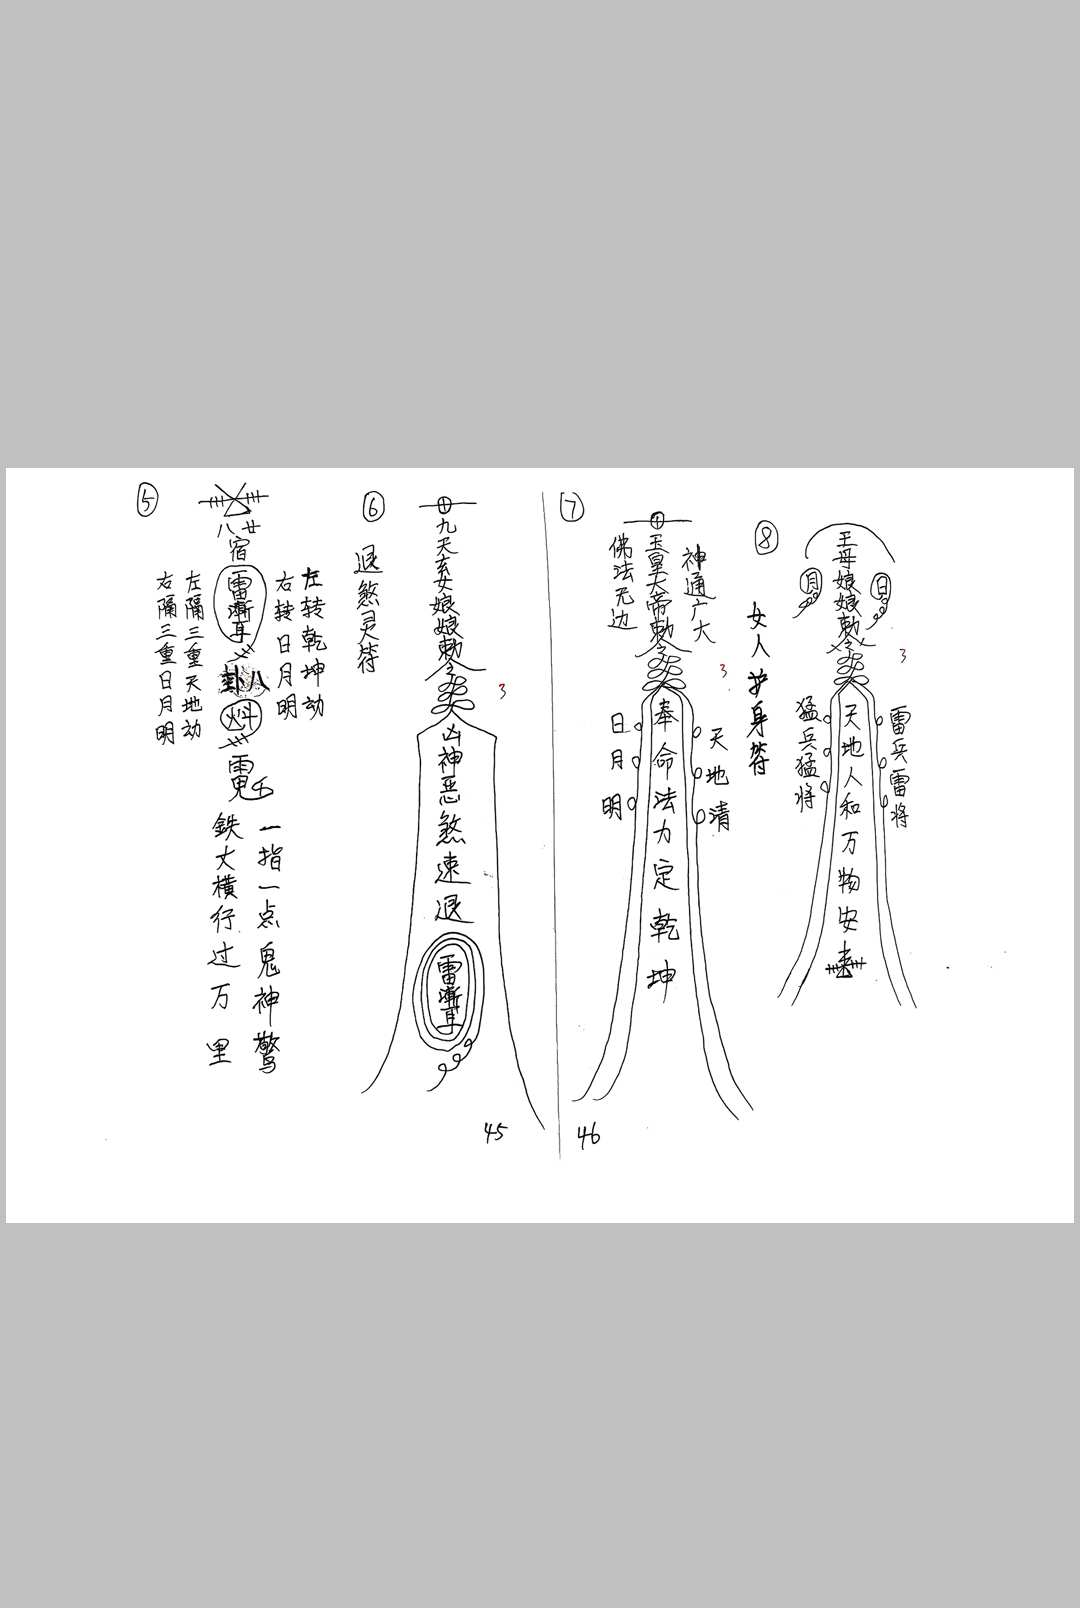 ⑤
八廿
宿
雷漸耳
卦八
魁
左转乾坤动
右转日月明
左隔三重天地动
右隔三重日月明
一指一点鬼神驚
鉄丈横行过万里
⑥
退煞灵符
九天玄女娘娘勅令
3
凶神恶煞速退
雷漸耳
45
⑦
玉皇大帝勅令
神通广大
佛法无边
3
奉命法力定乾坤
天地清
日月明
46
⑧
女人护身符
王母娘娘勅令
日
月
3
天地人和万物安
雷兵雷将
猛兵猛将